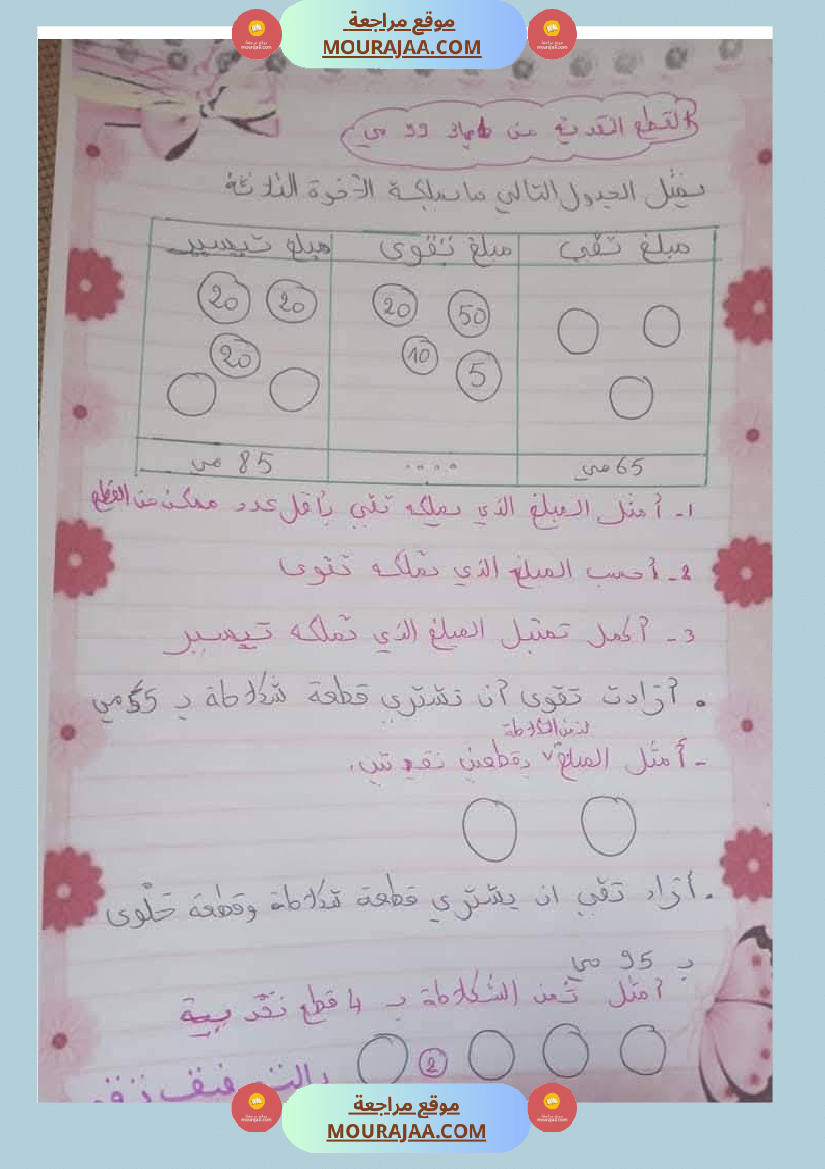 موقع مراجعة
MOURAJAA.COM
القطع النقدية من إلى 99 مي
يمثل الجدول التالي ما يملكه الأخوة الثلاثة
مبلغ تقي مبلغ تقوى مبلغ تيسير
50 20 20 20
5 10 20
65 مي .... 85 مي
1- أمثل المبلغ الذي يملكه تقي بأقل عدد ممكن من القطع
2- أحسب المبلغ الذي تملكه تقوى
3- أكمل تمثيل المبلغ الذي تملكه تيسير
• أرادت تقوى أن تشتري قطعة شكلاطة بـ 55 مي
لثمن الشكلاطة
- أمثل المبلغ ٧ بقطعتين نقديتين.
• أراد تقي ان يشتري قطعة شكلاطة وقطعة حلوى
بـ 95 مي
أمثل ثمن الشكلاطة بـ 4 قطع نقدية
2
بالتوفيق
موقع مراجعة
MOURAJAA.COM